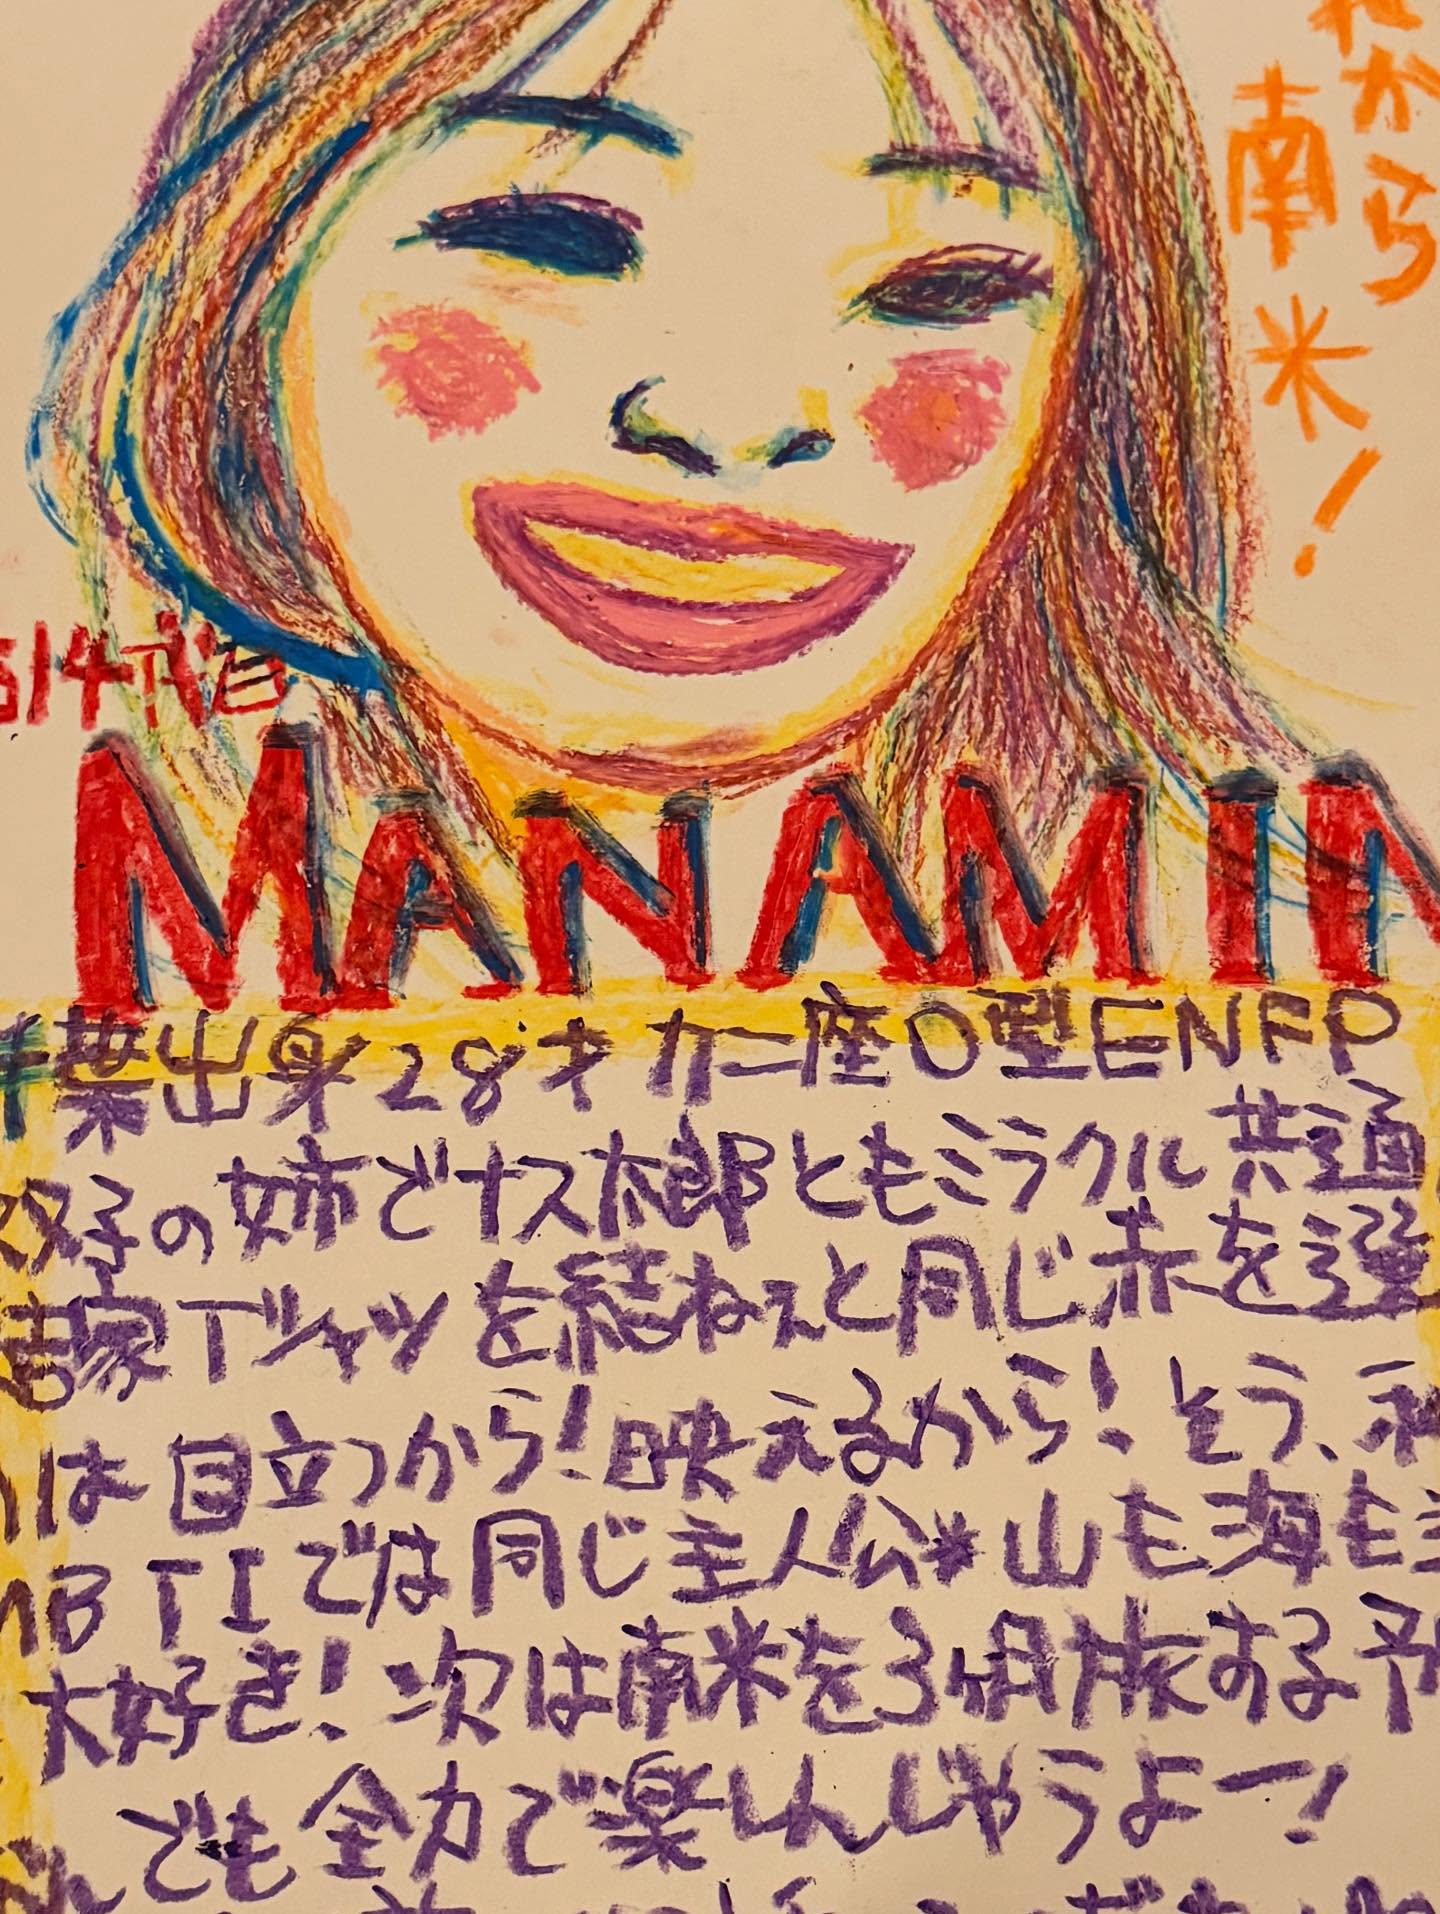 から
南米!
14代目
MANAMIN
葉出身28才カニ座O型ENFP
双子の姉でナス太郎ともミラクル共通
家Tシャツを結ねぇと同じ赤を選
は目立つから!映えるから!そう、
MBTIでは同じ主人公*山も海も
大好き!次は南米を3ヶ月旅する予
でも全力で楽しんじゃうよー!